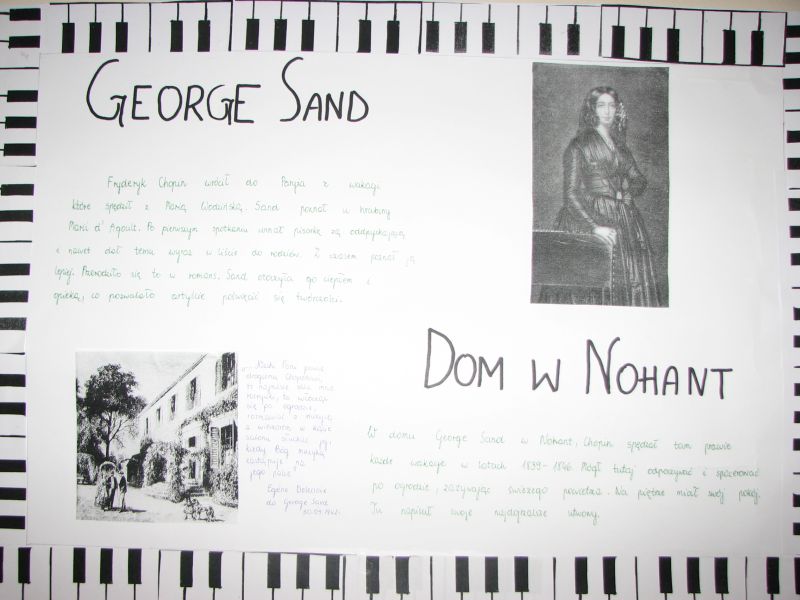 GEORGE SAND
Fryderyk Chopin wrócił do Paryża z wakacji
które spędził z Marią Wodzińską. Sand poznał u hrabiny
Marii d'Agoult. Po pierwszym spotkaniu uznał pisarkę za oddpychającą
i nawet dał temu wyraz w liście do rodziców. Z czasem poznał ją
lepiej. Przerodziło się to w romans. Sand otoczyła go ciepłem i
opieką, co pozwalało artyście poświęcić się twórczości.
DOM W NOHANT
W domu George Sand w Nohant, Chopin spędzał tam prawie
każde wakacje w latach 1839-1846. Mógł tutaj odpoczywać i spacerować
po ogrodzie, zażywając świeżego powietrza. Na piętrze miał swój pokój.
Tu napisał swoje najdojrzalsze utwory.
„Niech Pani powie
drogiemu Chopinowi,
że
to włóczyć
się po ogrodzie,
rozmawiać o muzyce
a wieczorem w kącie
salonu słuchać jej
kiedy Bóg muzyką
zastępuje na
jego palce"
do George Sand